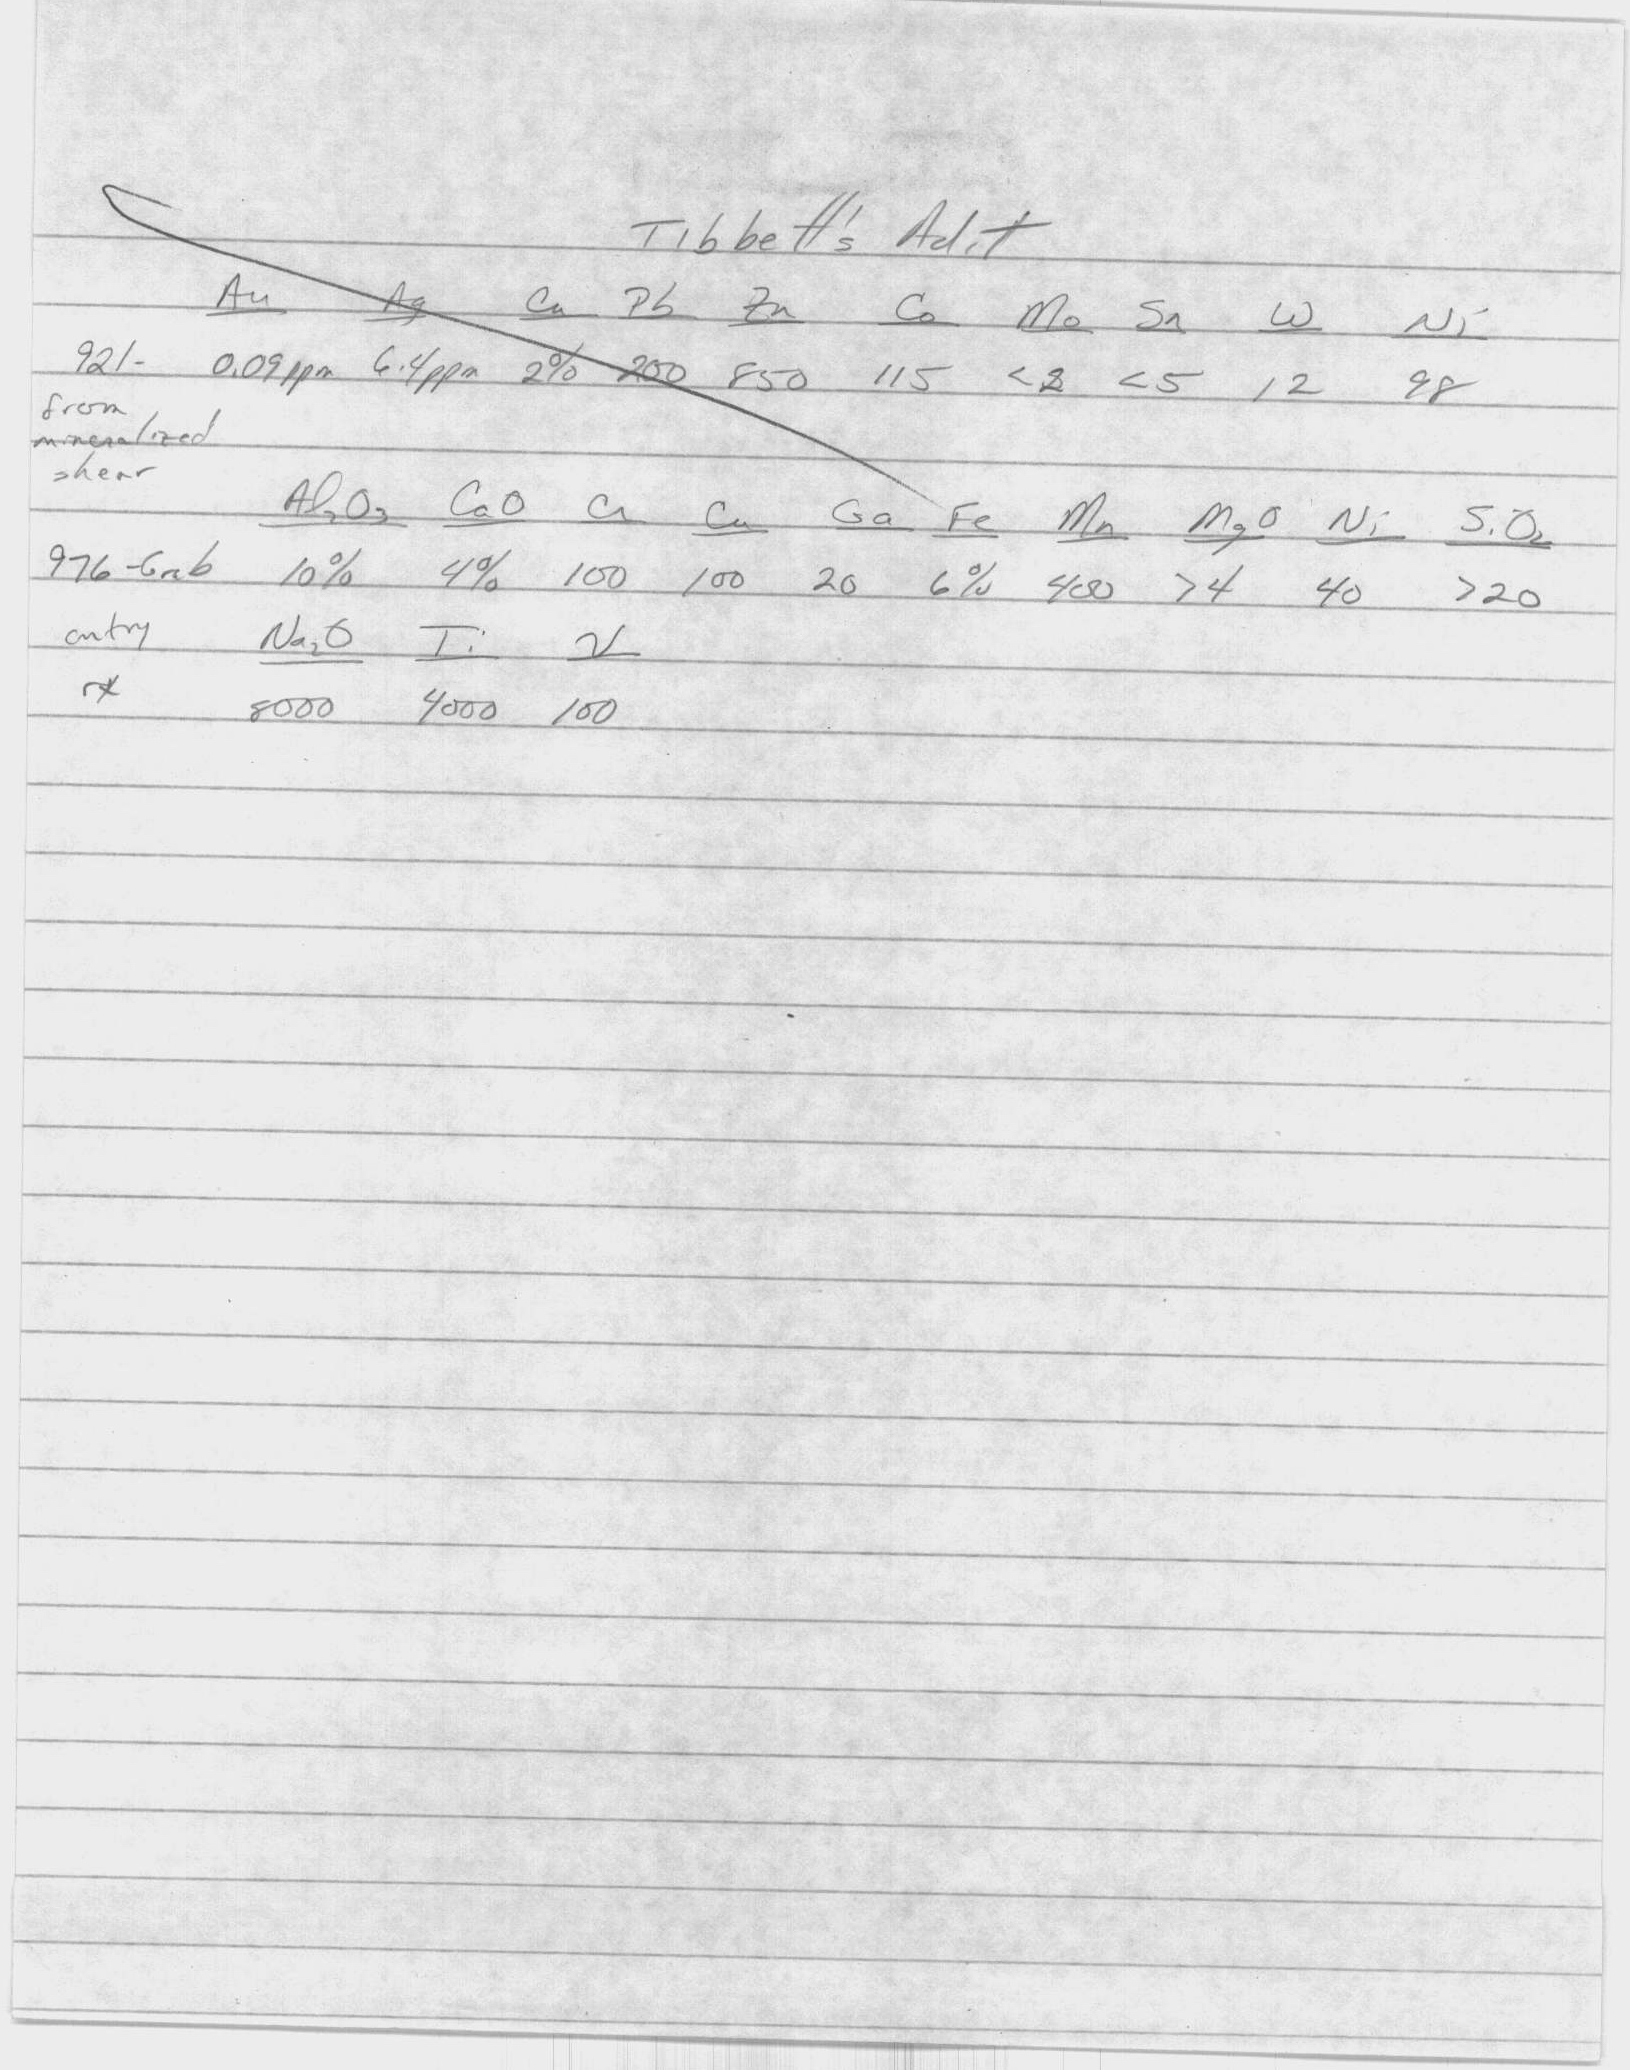 Tibbett's Adit
Au Ag Cu Pb Zn Co Mo Sn W Ni
921- 0.09ppm 6.4ppm 2% 200 850 115 <2 <5 12 98
from
mineralized
shear
Al2O3 CaO Cr Cu Ga Fe Mn MgO Ni SiO2
976-Grab 10% 4% 100 100 20 6% 400 >4 40 >20
cntry Na2O Ti V
rx 8000 4000 100